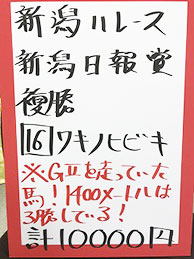 新潟11レース
新潟日報賞
複勝
16 ワキノヒビキ
※GⅡを走っていた
馬！1400メートルは
3勝している！
計10000円